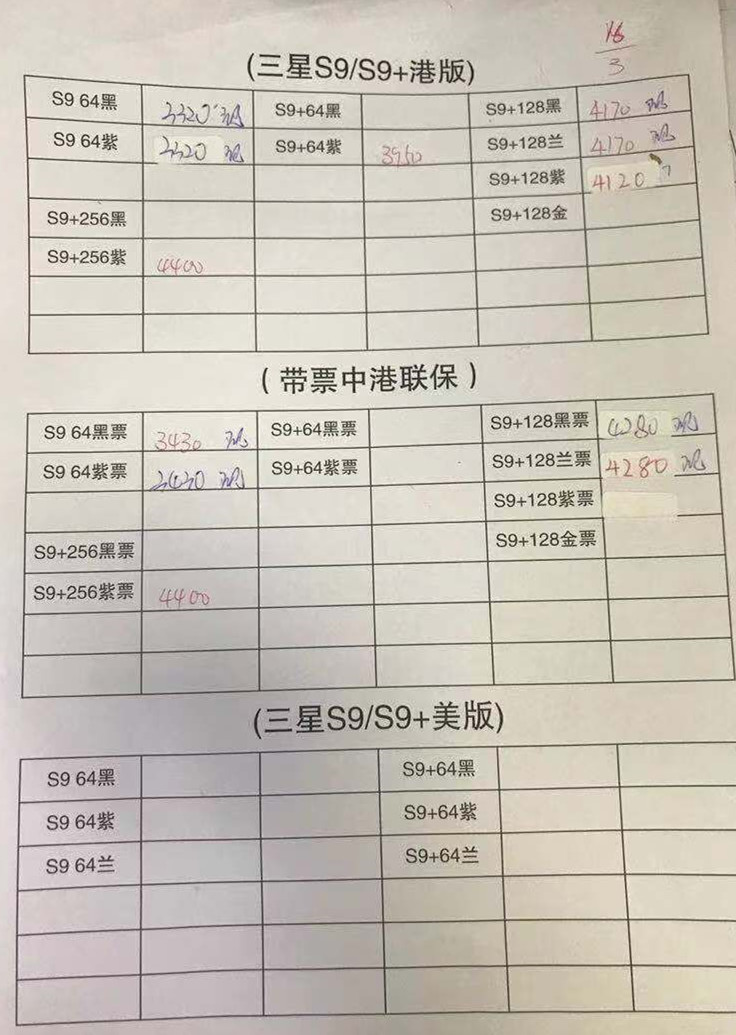 16
3
(三星S9/S9+港版)
S9 64黑 3320 现 S9+64黑 S9+128黑 4170 现
S9 64紫 3320 现 S9+64紫 3950 S9+128兰 4170 现
S9+128紫 4120
S9+256黑 S9+128金
S9+256紫 4400
(带票中港联保)
S9 64黑票 3430 现 S9+64黑票 S9+128黑票 4280 现
S9 64紫票 3430 现 S9+64紫票 S9+128兰票 4280 现
S9+128紫票
S9+256黑票 S9+128金票
S9+256紫票 4400
(三星S9/S9+美版)
S9 64黑 S9+64黑
S9 64紫 S9+64紫
S9 64兰 S9+64兰